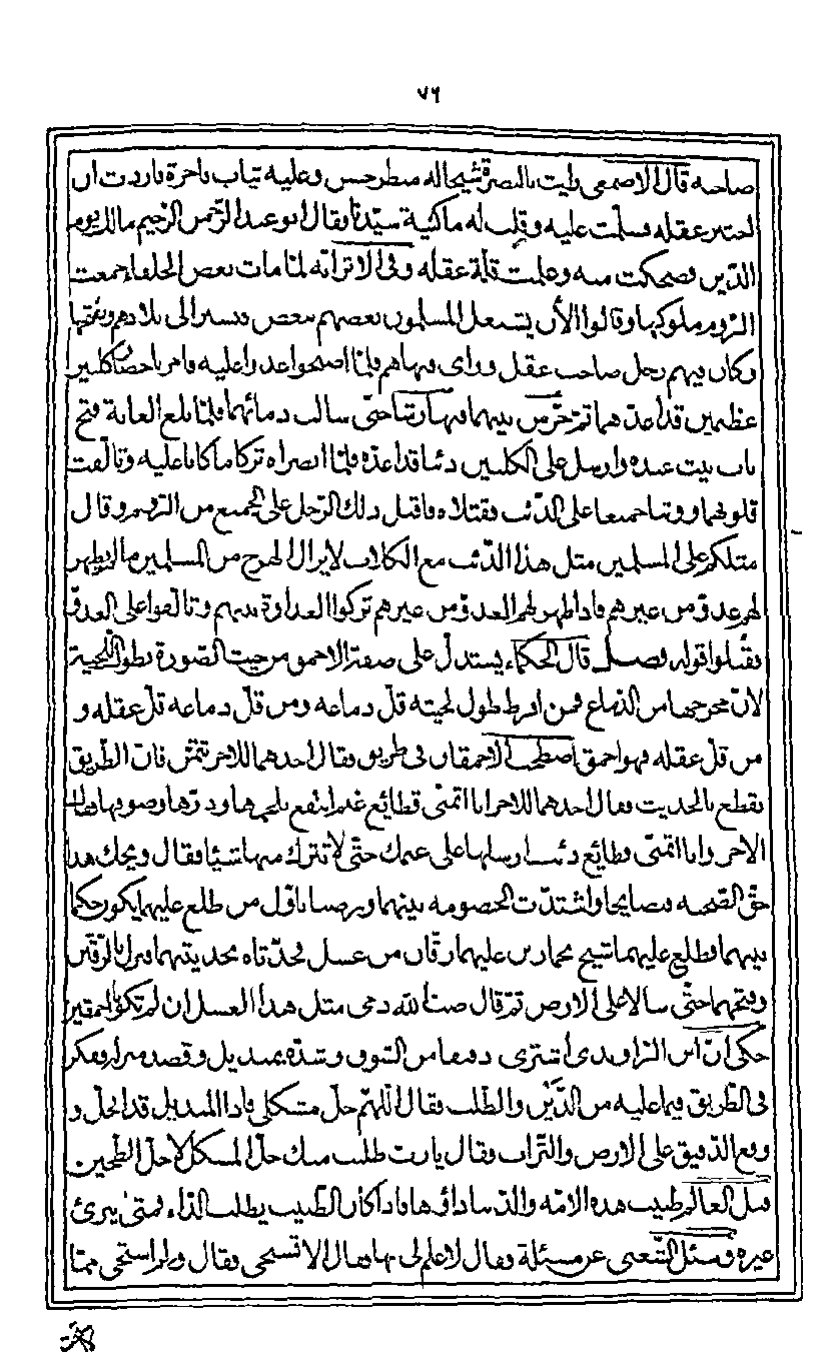 ٧٦
صاحبه قال الاصمعي رايت بالبصرة شيخا له منظر حسن وعليه ثياب فاخرة فاردت ان
اختبر عقله فسلمت عليه وقلت له ما كنية سيّدنا فقال ابو عبد الرّحمن الرّحيم مالك يوم
الدّين فضحكت منه وعلمت قلّة عقله وفى الاثر انّه لمّا مات بعض الخلفاء اجمعت
الرّوم ملوكها وقالوا الأن يشتعل المسلمون بعضهم ببعض
وكان فيهم رجل صاحب عقل وراى فنهاهم فلمّا اصبحوا غدوا عليه فامر باحضار كلبين
عظيمين قد اعدّهما ثمّ حرّش بينهما فتهارشا حتّى سالت دمائهما فلمّا بلغ الغاية فتح
باب بيت عنده وارسل على الكلبين ذئبا قد اعدّه فلمّا ابصراه تركا ما كانا عليه وتالّفت
قلوبهما ووثبا جميعا على الذّئب فقتلاه فاقبل ذلك الرّجل على الجميع من الرّوم وقال
مثلكم على المسلمين مثل هذا الذّئب مع الكلاب لا يزال الهرج من المسلمين ما لم يظهر
لهم عدوّ من غيرهم فاذا ظهر لهم العدوّ من غيرهم تركوا العداوة بينهم وتالفوا على العدوّ
فقبلوا قوله فصل قال الحكماء يستدلّ على صفة الاحمق من حيث الصّورة بطول اللّحية
لانّ مخرجها من الدّماغ فمن افرط طول لحيته قلّ دماغه ومن قلّ دماغه قلّ عقله و
من قلّ عقله فهو احمق اصطحب الاحمقان فى طريق فقال احدهما للاخر تمنّ فانّ الطّريق
يقطع بالحديث فقال احدهما للاخر انا اتمنّى قطائع غنم انتفع بلحمها ودرّها وصوفها فقال
الاخر وانا اتمنّى قطائع ذئب ارسلها على غنمك حتّى لا تترك منها شيئا فقال ويحك هذا
حقّ الصّحبه فتصايحا واشتدّت الخصومه بينهما ورضيا باوّل من طلع عليهما يكون حكما
بينهما فطلع عليهما شيخ بحمار بين عليه زقّان من عسل فحدّثاه بحديثهما فنزل بالزقّين
وفتحهما حتّى سالا على الارض ثمّ قال صبّ الله دمى مثل هذا العسل ان لم تكونا احمقين
حكى انّ ابن الرّاوندى اشترى دقيقا من السّوق وشدّه بمنديل وقصد منزله ففكر
فى الطّريق فيما عليه من الدّين والطّلب فقال اللّهمّ حلّ مشكلى فاذا المنديل قد انحلّ و
وقع الدّقيق على الارض والتّراب فقال يا ربّ طلبت منك حلّ المشكل لا حلّ الطّحين
قيل العالم طبيب هذه الامّه والدّنيا دائها فاذا كان الطّبيب يطلب الدّاء فمتى يبرئ
غيره وسئل الشّعبى عن مسئلة فقال لا علم لى بها فقال الا تستحى فقال ولم استحى ممّا